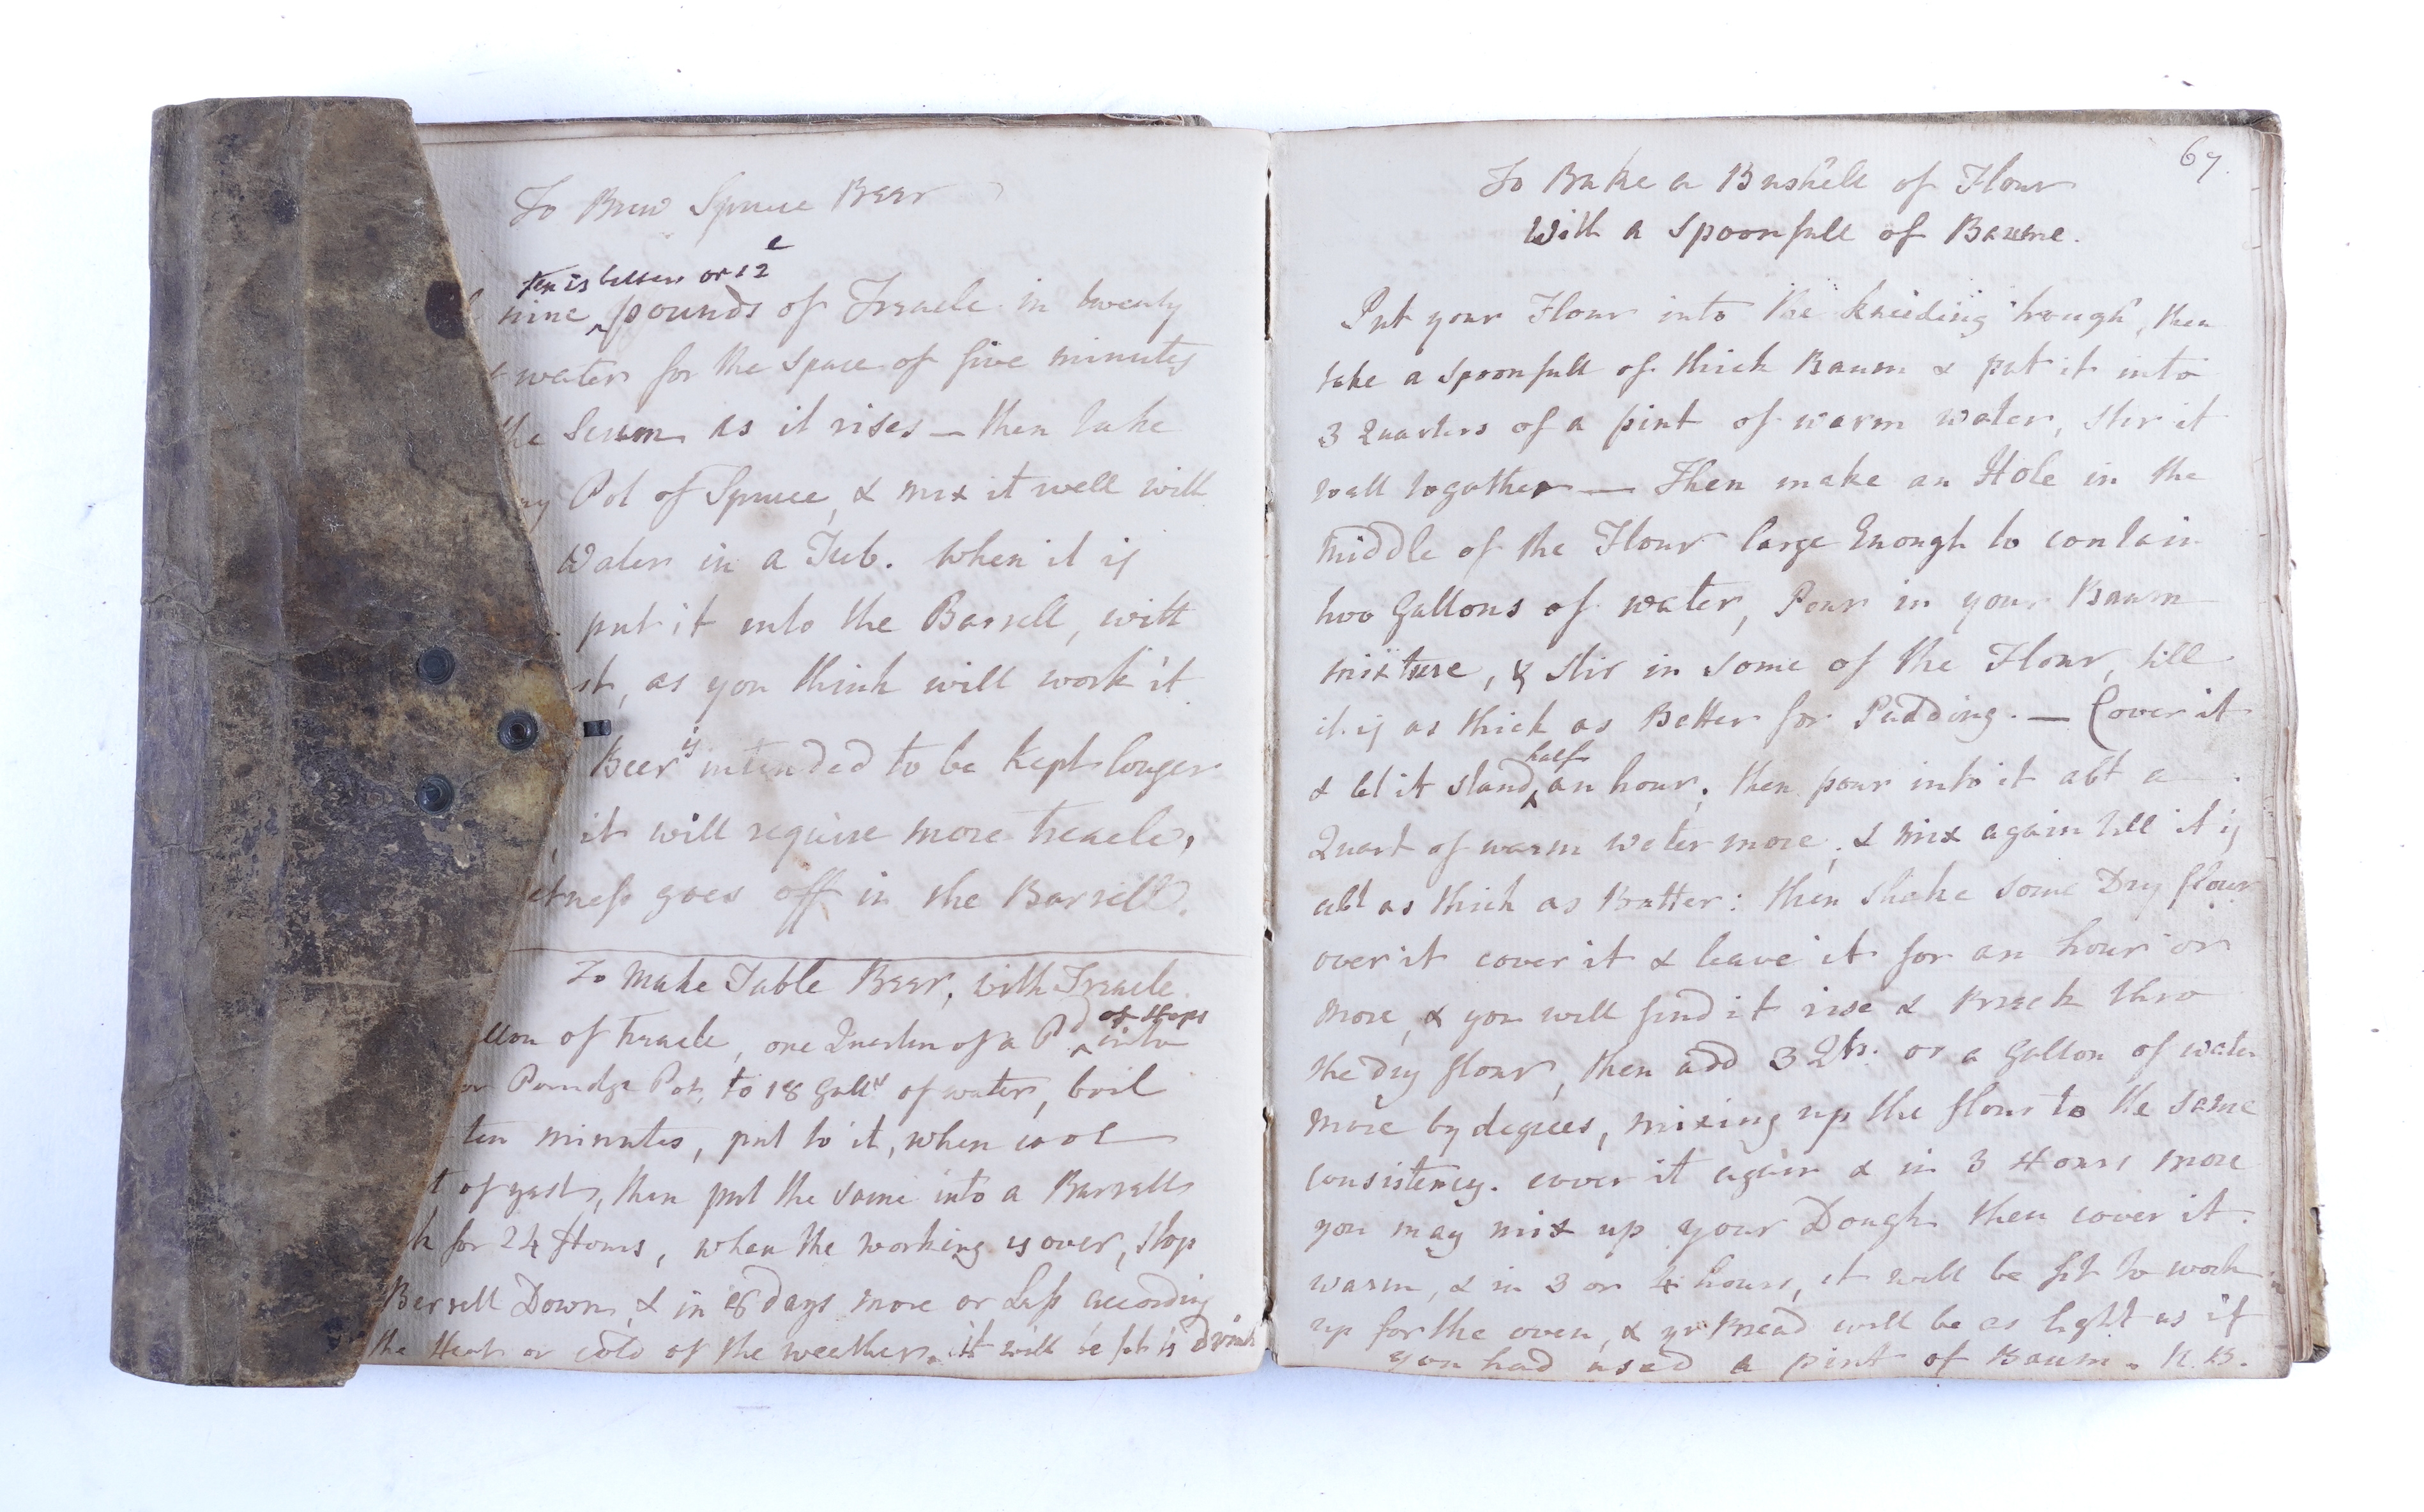 To Brew Spruce Beer
ten is better or 12
nine pounds of Treacle in twenty
water for the space of five minutes
the Scum as it rises — then take
Pot of Spruce, & mix it well with
Water in a Tub. when it is
put it into the Barrell, with
st, as you think will work it
Beer is intended to be kept longer
it will require more treacle,
etness goes off in the Barrell.
To Make Table Beer, with Treacle
llon of treacle, one Quarter of a Pd of Hops into
or Porridge Pot, to 18 Galls of water, boil
ten minutes, put to it, when cool
t of yast, then put the same into a Barrell
k for 24 Hours, when the working is over, stop
Barrell Down, & in 8 days more or Less according
the Heat or cold of the weather. it will be fit to drink
67.
To Bake a Bushell of Flour
With a Spoonfull of Baume.
Put your Flour into the kneeding trough, then
take a Spoonfull of thick Baum & put it into
3 Quarters of a pint of warm water, stir it
well together — Then make an Hole in the
middle of the Flour large Enough to contain
two Gallons of water, Pour in your Baum
mixture, & stir in some of the Flour, till
it is as thick as Batter for Pudding. — Cover it
& let it stand half an hour, then pour into it abt a
Quart of warm water more, & mix again till it is
abt as thick as Batter: then shake some Dry flour
over it cover it & leave it for an hour or
more, & you will find it rise & Break thro
the dry flour, then add 3 Qts. or a Gallon of water
more by degrees, mixing up the flour to the same
consistency. cover it again & in 3 Hours more
you may mix up your Dough then cover it
warm, & in 3 or 4 hours, it will be fit to work
up for the oven, & yr Bread will be as light as if
you had used a pint of Baum. N.B.